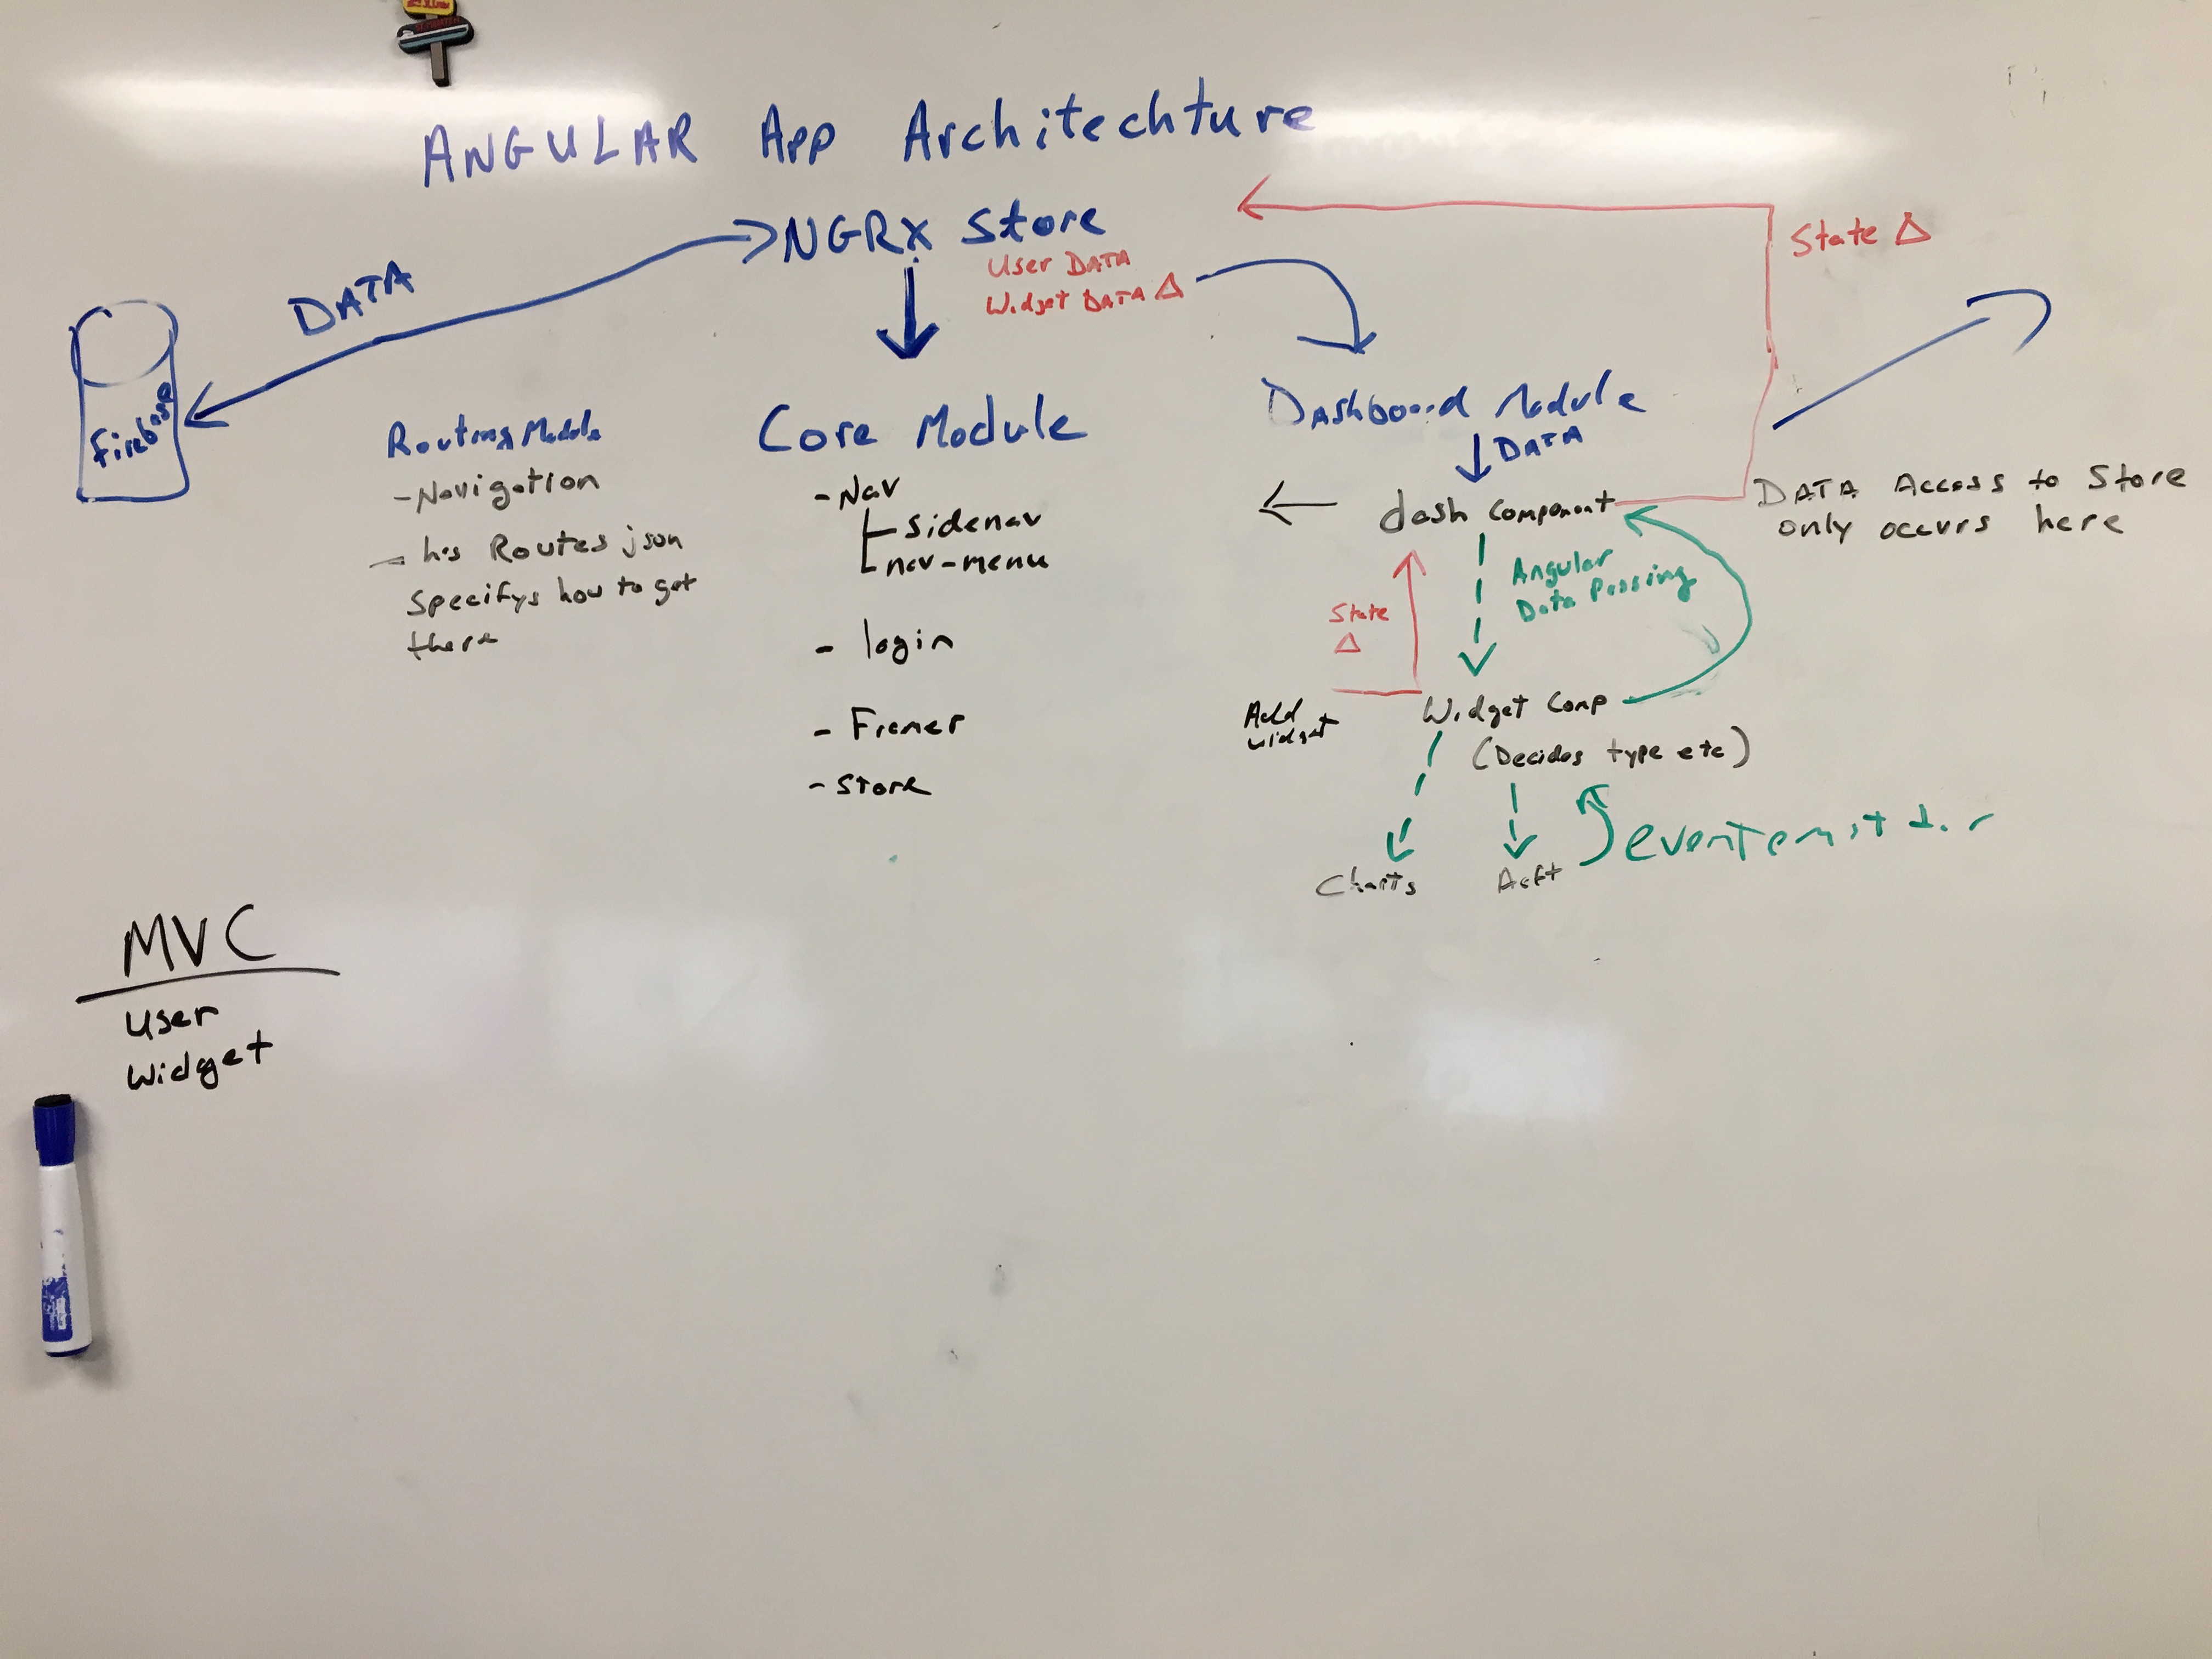 ANGULAR App Architechture
NGRX Store
User DATA
Widget DATA Δ
State Δ
DATA
firebase
Routing Module
- Navigation
- has Routes json
Specifys how to get
there
Core Module
- Nav
- sidenav
- nav-menu
- login
- Framer
- Store
Dashboard Module
DATA
dash component
DATA Access to Store
only occurs here
Angular
Data Passing
State
Δ
Add
widget
Widget Comp
(Decides type etc)
Charts
eventemitter
MVC
User
Widget